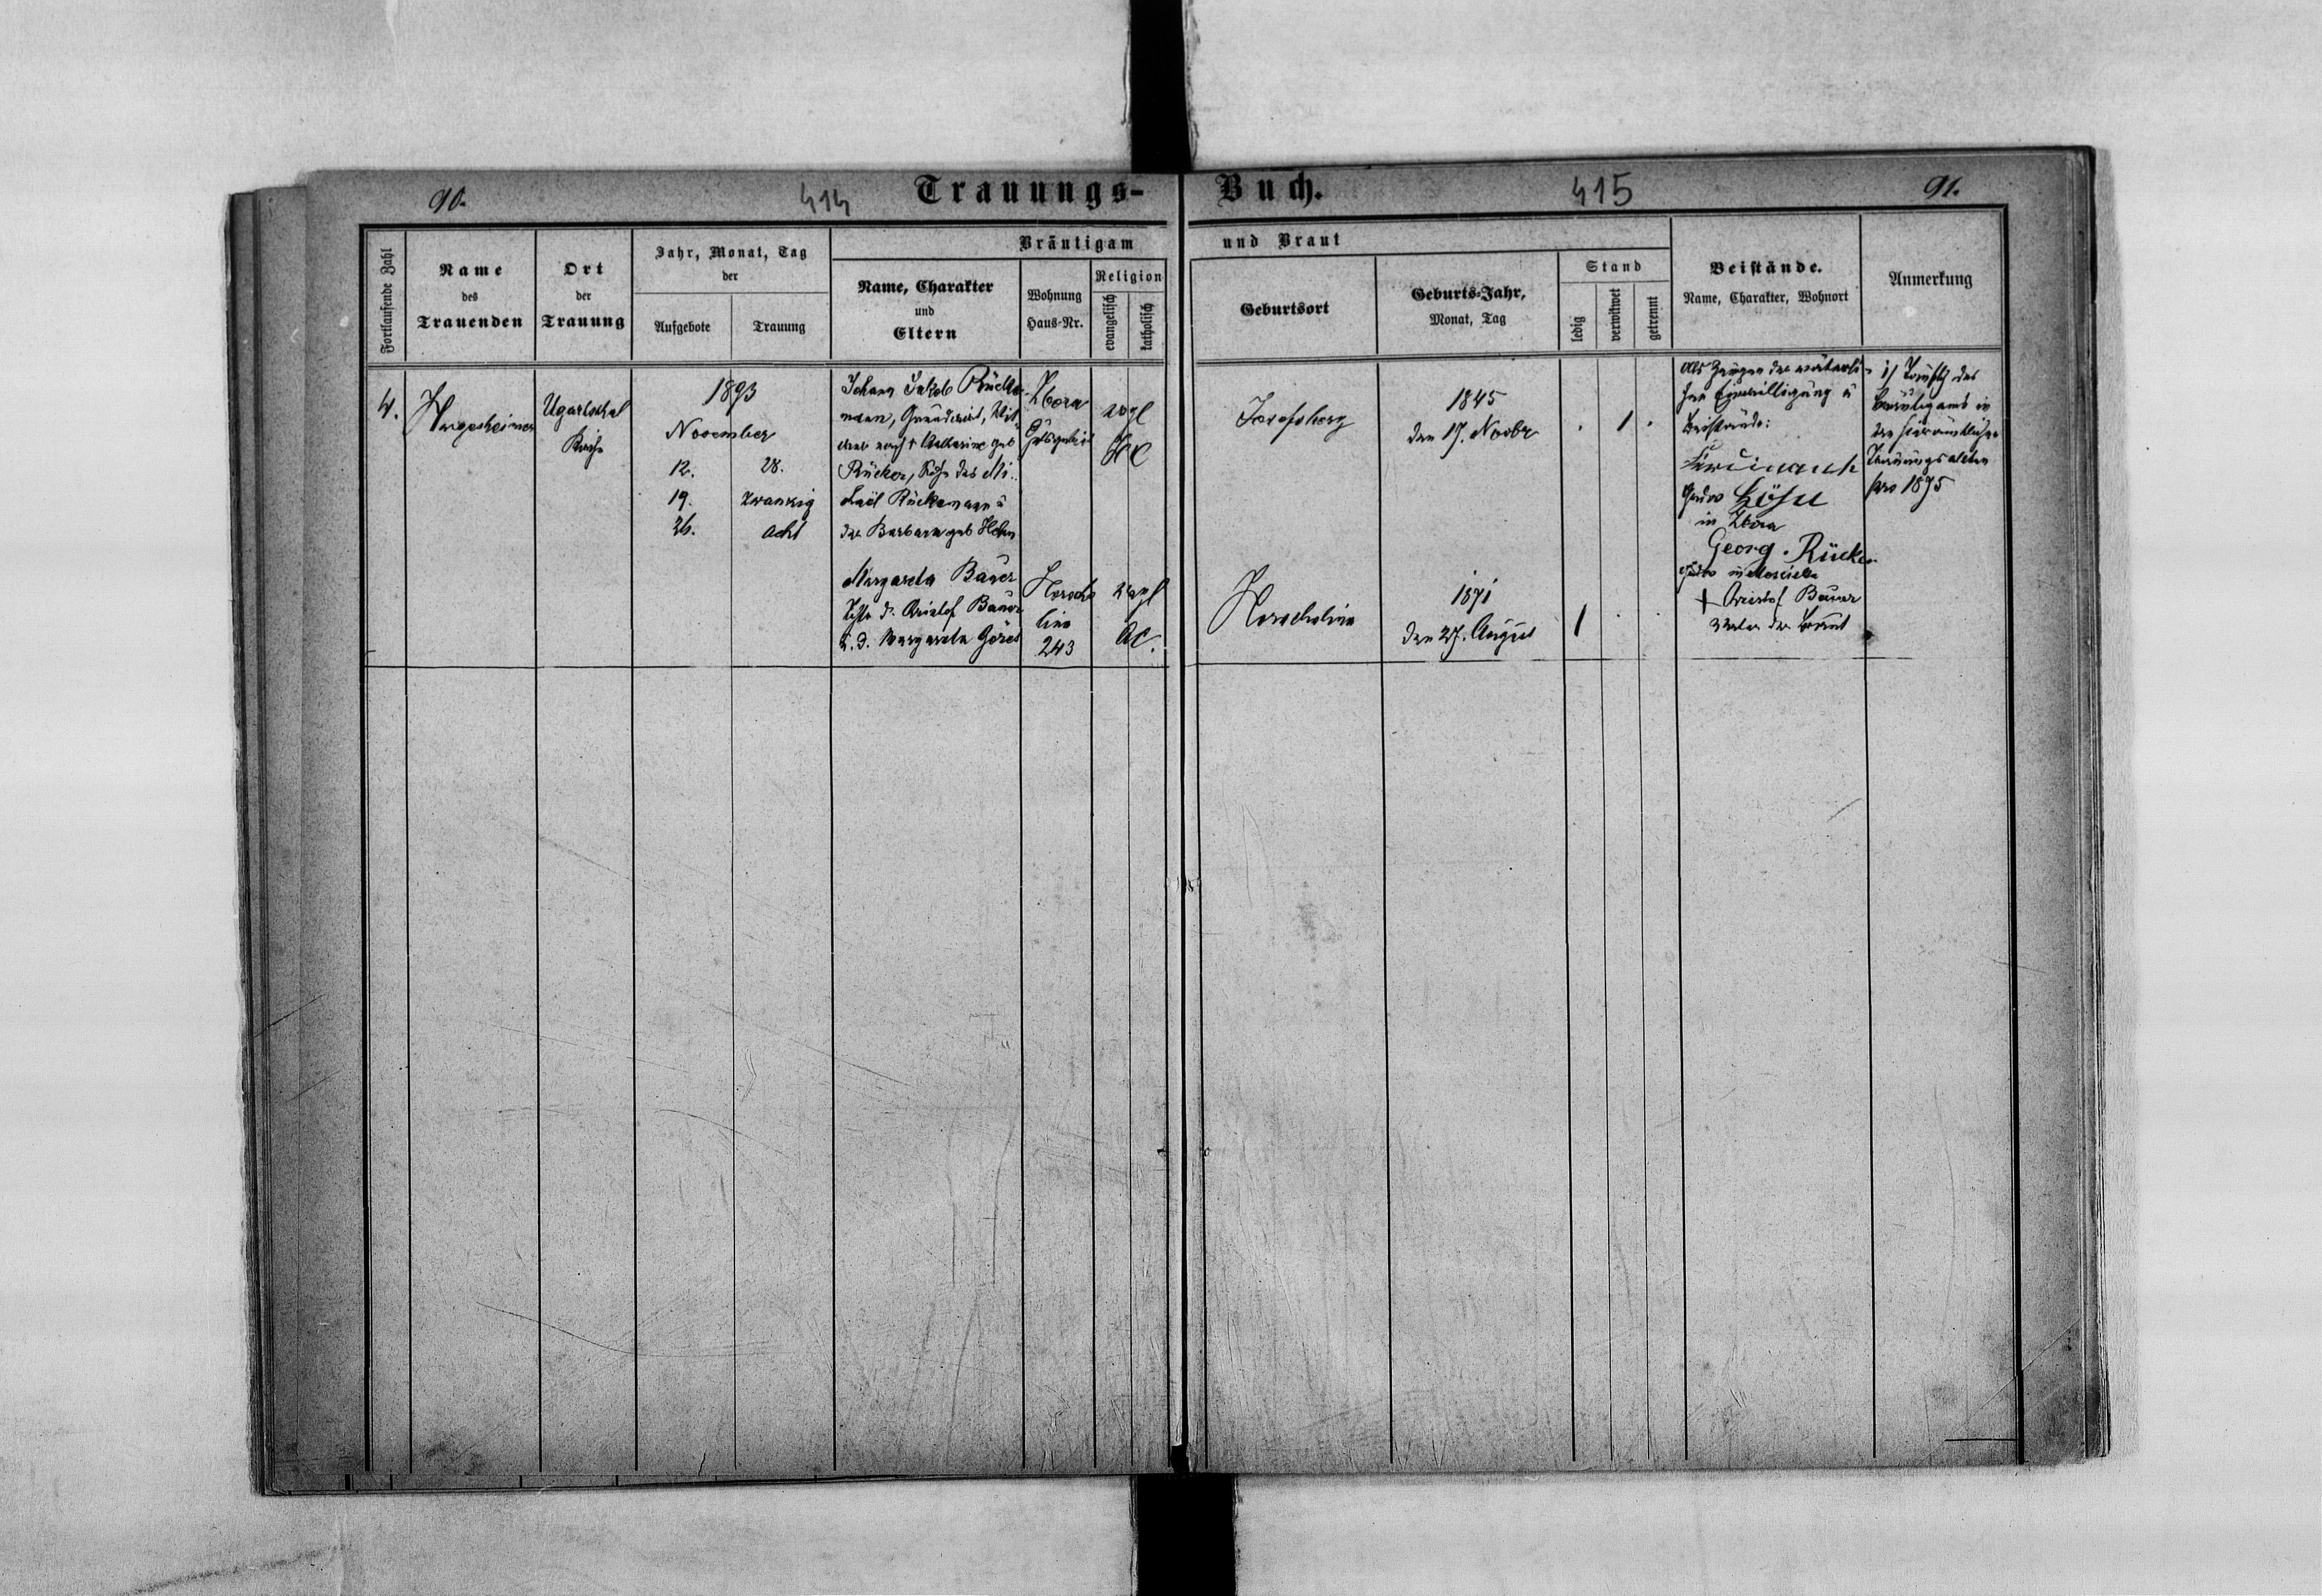 90.
414
Trauungs-
Buch.
415
91.
Fortlaufende Zahl
Name
des
Trauenden
Ort
der
Trauung
Jahr, Monat, Tag
der
Aufgebote
Trauung
Bräutigam
Name, Charakter
und
Eltern
Wohnung
Haus-Nr.
Religion
evangelisch
katholisch
und Braut
Geburtsort
Geburts-Jahr,
Monat, Tag
Stand
ledig
verwitwet
getrennt
Beistände.
Name, Charakter, Wohnort
Anmerkung
4.
Hargesheimer
Ugartsthal
Kirche
1893
November
12.
28.
19.
zwanzig
26.
acht
Johann Jakob Rücke-
mann, Grundwirt, Wit-
wer nach † Katharine geb
Rücker, Sohn des Mi-
chael Rückemann u
der Barbara geb Hehn
Zbora
evgl
HC
Josefsberg
1845
den 17. Novbr
. 1 .
Als Zeugen der väterli-
chen Einwilligung u
Beistände:
Ferdinand
Höhn
in Zbora
Georg Rücker
in
† Christof Bauer
Vater der Braut
1/ des
Bräutigams in
Trauungsakten
pro 1875
Margareta Bauer
Tchtr d. Christof Bauer
u. d. Margareta Göres
243
evgl
AC.
1871
den 27. August
1 . .